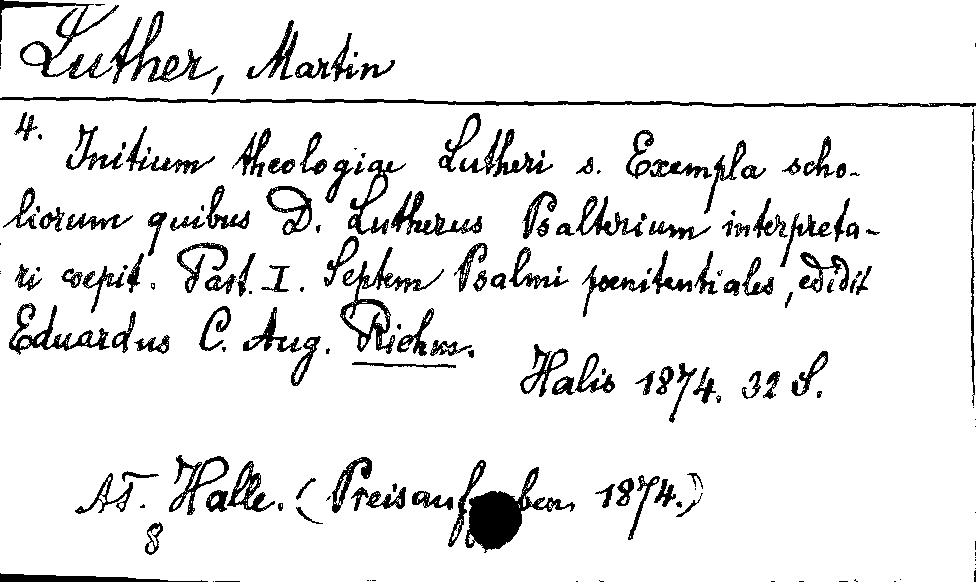 Luther, Martin
4. Initium theologiae Lutheri s. Exempla scho-
liorum quibus D. Lutherus Psalterium interpreta-
ri coepit. Part. I. Septem Psalmi poenitentiales, edidit
Eduardus C. Aug. Riehm.
Halis 1874. 32 S.
AT. Halle. (Preisaufgaben 1874.)
8